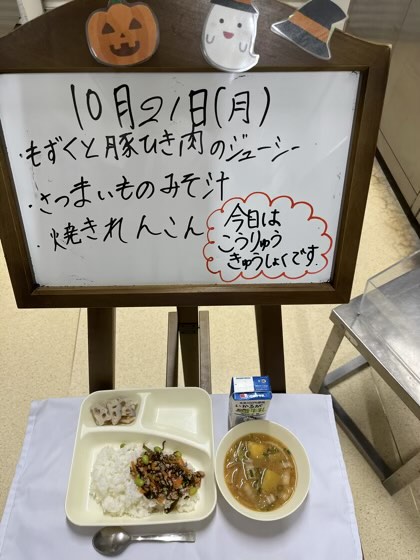 10月21日(月)
・もずくと豚ひき肉のジューシー
・さつまいものみそ汁
・焼きれんこん
今日は
こうりゅう
きゅうしょくです。